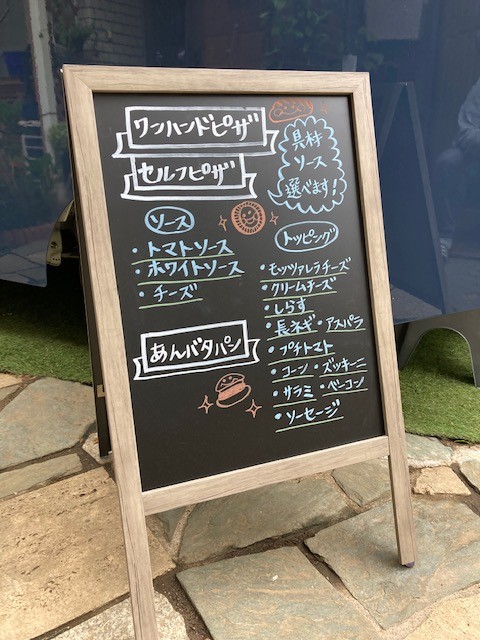 ワンハンドピザ
セルフピザ
具材
ソース
選べます!
ソース
・トマトソース
・ホワイトソース
・チーズ
トッピング
・モッツァレラチーズ
・クリームチーズ
・しらす
・長ネギ ・アスパラ
・プチトマト
・コーン ・ズッキーニ
・サラミ ・ベーコン
・ソーセージ
あんバタパン